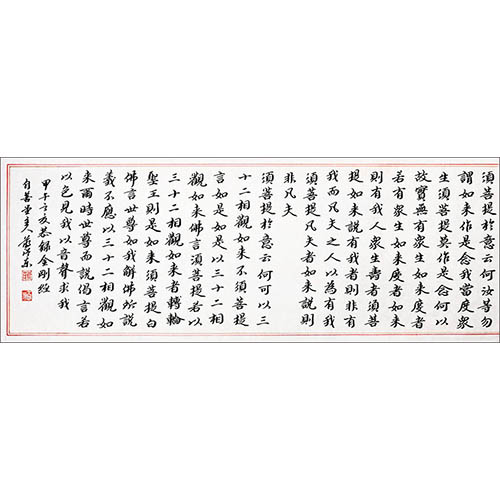 須菩提於意云何汝等勿
謂如来作是念我當度衆
生須菩提莫作是念何以
故實無有衆生如来度者
若有衆生如来度者如来
則有我人衆生壽者須菩
提如来說有我者則非有
我而凡夫之人以為有我
須菩提凡夫者如来說則
非凡夫
須菩提於意云何可以三
十二相觀如来不須菩提
言如是如是以三十二相
觀如来佛言須菩提若以
三十二相觀如来者轉輪
聖王則是如来須菩提白
佛言世尊如我解佛所說
義不應以三十二相觀如
来爾時世尊而說偈言若
以色見我以音聲求我
甲午之夏恭録金剛經